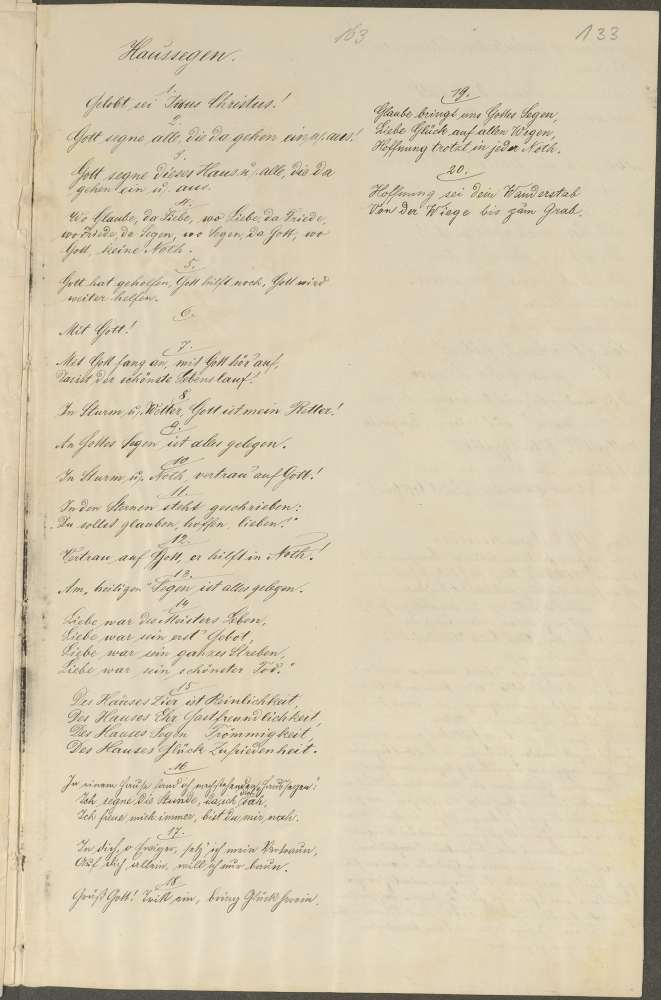 163
133
Haussegen.
1.
Gelobt sei Jesus Christus!
2.
Gott segne alle, die da gehen ein u. aus!
3.
Gott segne dieses Haus u. alle, die da
gehen ein u. aus.
4.
Wo Glaube, da Liebe, wo Liebe, da Friede,
wo Friede, da Segen, wo Segen, da Gott, wo
Gott, keine Noth.
5.
Gott hat geholfen, Gott hilft noch, Gott wird
weiter helfen.
6.
Mit Gott!
7.
Mit Gott fang an, mit Gott hör' auf,
Das ist der schönste Lebenslauf!
8.
In Sturm u. Wetter, Gott ist mein Retter!
9.
An Gottes Segen ist alles gelegen.
10
In Sturm u. Noth, vertrau' auf Gott!
11.
In den Sternen steht geschrieben:
„Du sollst glauben, hoffen, lieben!"
12.
Vertrau auf Gott, er hilft in Noth!
13.
Am „heiligen" Segen ist alles gelegen.
14
Liebe war des Meisters Leben,
Liebe war sein erst' Gebot,
Liebe war sein ganzes Streben,
Liebe war sein schönster Tod."
15
Des Hauses Zier ist Reinlichkeit,
Des Hauses Ehr Gastfreundlichkeit,
Des Hauses Segen Frömmigkeit,
Des Hauses Glück Zufriedenheit.
16
In einem Hause fand ich nachstehenden „Haussegen":
Ich segne die Stunde, da ich dich sah,
Ich freue mich immer, bist du mir nah.
17.
In dich, o Ewiger, setz' ich mein Vertraun,
Auf dich allein, will ich nur baun.
18
Grüß Gott! Tritt ein, bring Glück herein.
19.
Glaube bringt uns Gottes Segen,
Liebe Glück auf allen Wegen,
Hoffnung trotzt in jeder Noth.
20.
Hoffnung sei dein Wanderstab
Von der Wiege bis zum Grab.